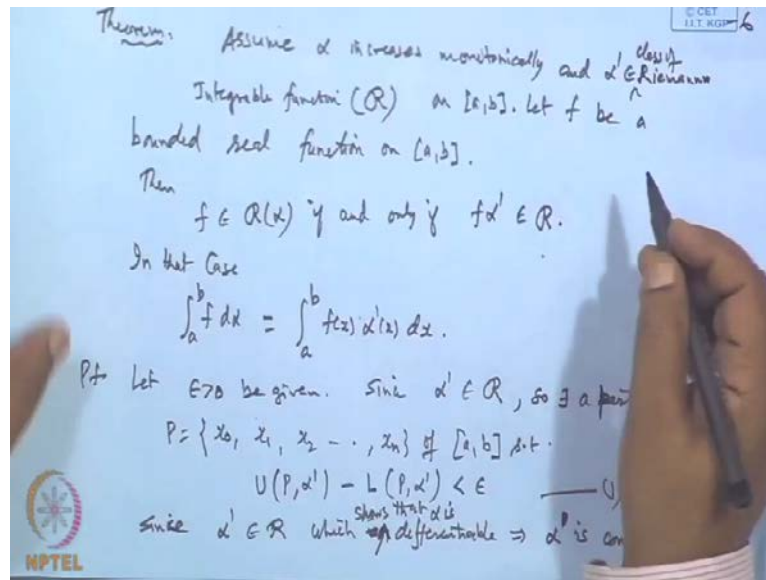 © CET
I.I.T. KGP
-6
Theorem. Assume α increases monotonically and α' ∈ class of Riemann
Integrable function (R) on [a,b]. Let f be a
bounded real function on [a,b].
Then
f ∈ R(α) if and only if fα' ∈ R.
In that Case
∫_a^b f dα = ∫_a^b f(x) α'(x) dx.
Pf Let ε>0 be given. Since α' ∈ R, so ∃ a par
P = {x0, x1, x2 - - , xn} of [a,b] s.t.
U(P,α') - L(P,α') < ε
since α' ∈ R which shows that α is differentiable ⇒ α is con
NPTEL